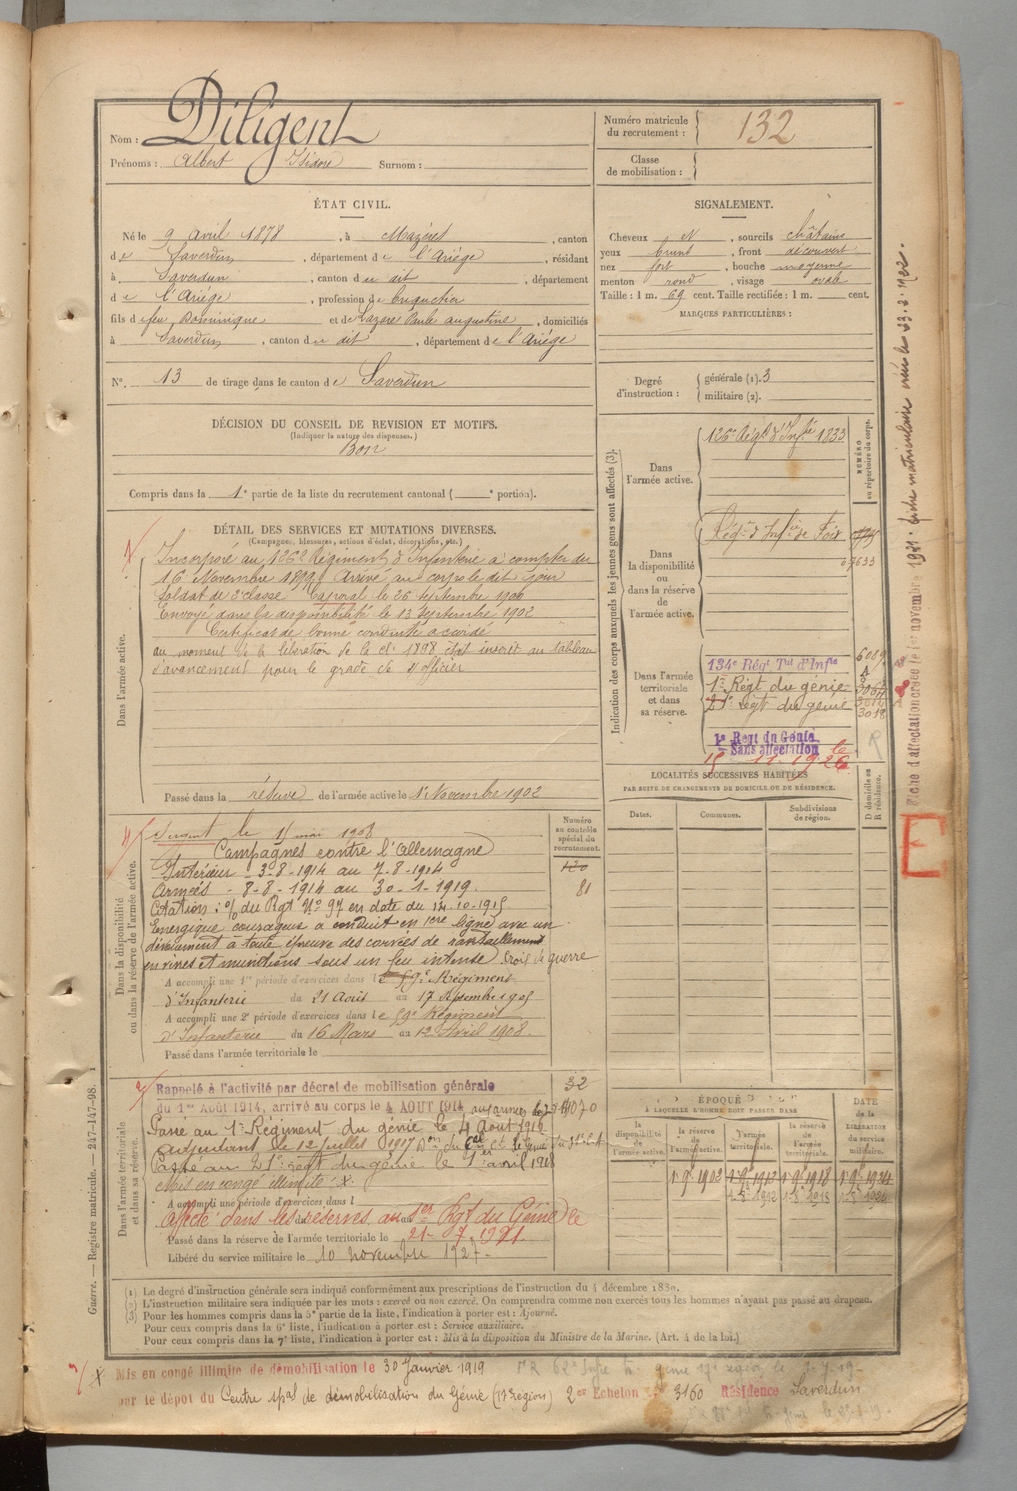 Nom : Diligent
Prénoms : Albert Isidore Surnom :
Numéro matricule du recrutement : 132
Classe de mobilisation :
ÉTAT CIVIL.
Né le 9 avril 1878, à Mazères, canton
de Saverdun, département de l'Ariège, résidant
à Saverdun, canton du dit, département
de l'Ariège, profession de briquetier
fils de feu Dominique et de Lazare Paule augustine, domiciliés
à Saverdun, canton du dit, département de l'Ariége
N° 13 de tirage dans le canton de Saverdun
SIGNALEMENT.
Cheveux N, sourcils châtains
yeux bruns, front découvert
nez fort, bouche moyenne
menton rond, visage ovale
Taille : 1 m. 69 cent. Taille rectifiée : 1 m. cent.
MARQUES PARTICULIÈRES :
Degré d'instruction : générale (1). 3
militaire (2).
DÉCISION DU CONSEIL DE REVISION ET MOTIFS.
(Indiquer la nature des dispenses.)
Bon
Compris dans la 1e partie de la liste du recrutement cantonal ( e portion).
DÉTAIL DES SERVICES ET MUTATIONS DIVERSES.
(Campagnes, blessures, actions d'éclat, décorations, etc.)
Dans l'armée active.
Incorporé au 126e Régiment d'Infanterie à compter du
16 Novembre 1899. Arrivé au corps le dit jour
Soldat de 2e classe. Caporal le 26 septembre 1900
Envoyé dans la disponibilité le 13 Septembre 1902
Certificat de bonne conduite accordé
au moment de la libération de la cl. 1898 était inscrit au tableau
d'avancement pour le grade de s/officier
Passé dans la réserve de l'armée active le 1er Novembre 1902
Indication des corps auxquels les jeunes gens sont affectés (3).
NUMÉRO au répertoire du corps.
Dans l'armée active.
126e Régt d'Infie 1833
Dans la disponibilité ou dans la réserve de l'armée active.
Régt d'Infie de Foix
Dans l'armée territoriale et dans sa réserve.
134e Régt Tal d'Infie
1er Régt du génie
21e régt du génie
3018
1er Regt du Génie
Sans affectation le
15 11 1926
R
Dans la disponibilité ou dans la réserve de l'armée active.
Numéro au contrôle spécial du recrutement.
120
81
Sergent le 15 mai 1908
Campagnes contre l'Allemagne
Intérieur - 3-8-1914 au 7-8-1914
Armées - 8-8-1914 au 30-1-1919.
Citation : % du Rgt N° 97 en date du 14-10-1915
Energique courageux a conduit en 1ere ligne avec un
dévouement à toute épreuve des corvées de ravitaillement
en vivres et munitions sous un feu intense Croix de guerre
A accompli une 1re période d'exercices dans le 59e Régiment
d'Infanterie du 21 Août au 17 Septembre 1905
A accompli une 2e période d'exercices dans le 59e Régiment
d'Infanterie du 16 Mars au 12 Avril 1908.
Passé dans l'armée territoriale le
Dans l'armée territoriale et dans sa réserve.
Rappelé à l'activité par décret de mobilisation générale 32
du 1er Août 1914, arrivé au corps le 4 AOUT 1914 aux armées
Passé au 1er Regiment du genie le 4 Août 1916
adjudant le 12 Juillet 1917
Passé au 21e régt du génie le 1er avril 1918
Mis en congé illimité : X.
A accompli une période d'exercices dans l
Affecté dans les réserves au 1er Rgt du Génie le
Passé dans la réserve de l'armée territoriale le 21-7-1921
Libéré du service militaire le 10 novembre 1927.
LOCALITÉS SUCCESSIVES HABITÉES
PAR SUITE DE CHANGEMENTS DE DOMICILE OU DE RÉSIDENCE.
Dates. Communes. Subdivisions de région. D domicile ou R résidence.
ÉPOQUE
À LAQUELLE L'HOMME DOIT PASSER DANS
la disponibilité de l'armée active. la réserve de l'armée active. l'armée territoriale. la réserve de l'armée territoriale.
DATE de la LIBÉRATION du service militaire.
(1) Le degré d'instruction générale sera indiqué conformément aux prescriptions de l'instruction du 4 décembre 1889.
(2) L'instruction militaire sera indiquée par les mots : exercé ou non exercé. On comprendra comme non exercés tous les hommes n'ayant pas passé au drapeau.
(3) Pour les hommes compris dans la 5e partie de la liste, l'indication à porter est : Ajourné.
Pour ceux compris dans la 6e liste, l'indication à porter est : Service auxiliaire.
Pour ceux compris dans la 7e liste, l'indication à porter est : Mis à la disposition du Ministre de la Marine. (Art. 4 de la loi.)
X Mis en congé illimité de démobilisation le 30 Janvier 1919
par le dépôt du Centre spal de démobilisation du Génie (17e region) 2er Echelon 3160 Résidence Saverdun
Guerre. — Registre matricule. — 247-147-98.
Fiche d'affectation créée le 1er novembre 1921. fiche matriculaire
E